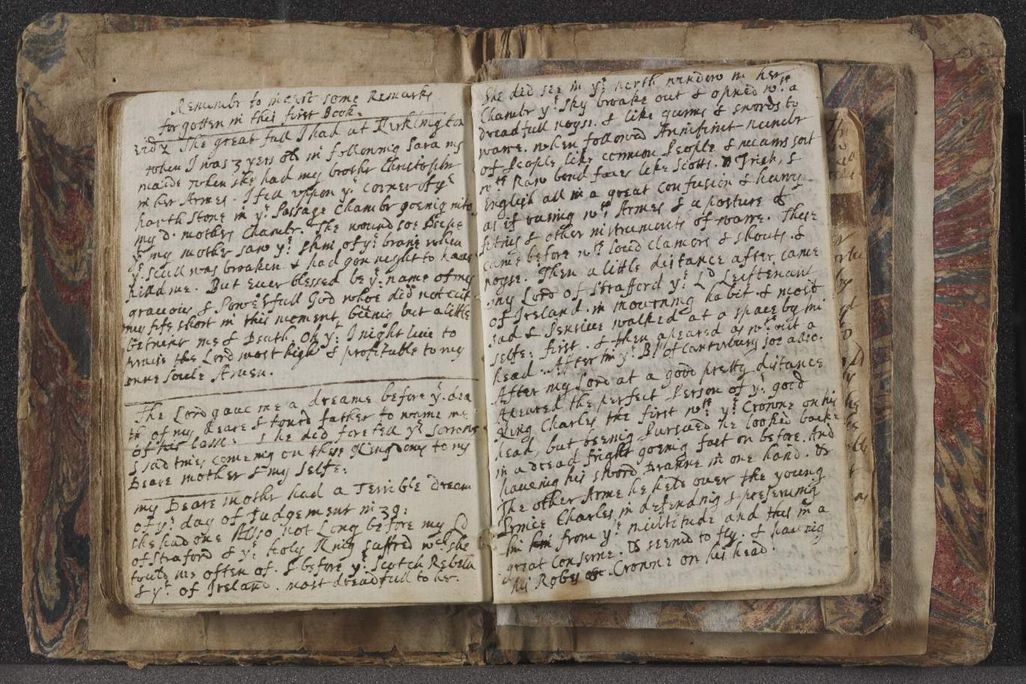 Remember to insist some Remarks
forgotten in this first Book.
The great fall I had at Kirkington
when I was 3 yers old in following Sara my
maide when she had my brother Christopher
in her Armes. I fell uppon ye corner of ye
harth stone in ye Passage Chambr goeing into
my d. mothers Chambr. The wound soe Deepe
yt my mother saw ye skin of ye braine when
ye scull was broaken & had gon neight to haue
kild me. But ever blessed be ye name of my
gracious & Powerfull God whoe did not cutt
my life short in this moment beeing but a little
betwene me & Death. Oh yt I might live to
praise the Lord most high & profitable to my
owne Soule Amen.
The Lord gave me a dreame before ye dea
th of my Deare & honrd father to warne me
of his losse. & he did foretell ye sorrows
& sad times comeing on these Kingdoms to my
Deare mother & my selfe.
my Deare mother had a Terrible dream
of ye day of Judgement in 39:
she had one Allso not Long before my Ld
of Straford & ye holy King suffred which she
tould me often of. & before ye Scotch Rebellion
& yt of Ireland. most dreadfull to her.
She did see in ye north window in her
Chambr ye Sky breake out & opned wth a
dreadfull noyse. & like guns & swords to
warre. when followed An infinit number
of People like common People & meane sort
wth Raw bond faces like Scotts. & Irish, &
English all in a great confusion & hurry
as if runing wth Armes & a posture of
& other instruments of warre. These
came before wth loud clamors & shouts. &
noyse. Then a little distance after came
my Lord of Strafford ye Ld Leiftenant
of Ireland. in mourning habit & most
sad & Pensive walked at a space by him
selfe: first. & then apeared as wth out a
head. After him ye Bp of Canterbury soe allso.
After my Lord at a good pretty distance
Apeared the perfect Person of ye good
King Charles the first wth ye Crowne on his
head, but beeing Pursued he looked backe
in a dread fright going fast on before. And
haueing his sword Drawne in one hand. &
The other Arme he held over the young
Prince Charles in defending & preserving
him from ye multitude and this in a
great Conserne. & seemed to fly. & haueing
his Robes & Crowne on his head.